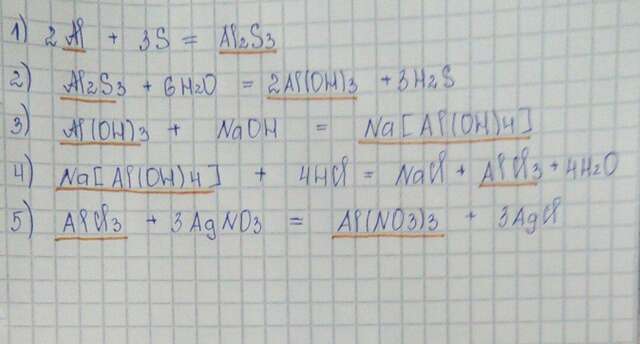 1) 2Al + 3S = Al2S3
2) Al2S3 + 6H2O = 2Al(OH)3 + 3H2S
3) Al(OH)3 + NaOH = Na[Al(OH)4]
4) Na[Al(OH)4] + 4HCl = NaCl + AlCl3 + 4H2O
5) AlCl3 + 3AgNO3 = Al(NO3)3 + 3AgCl